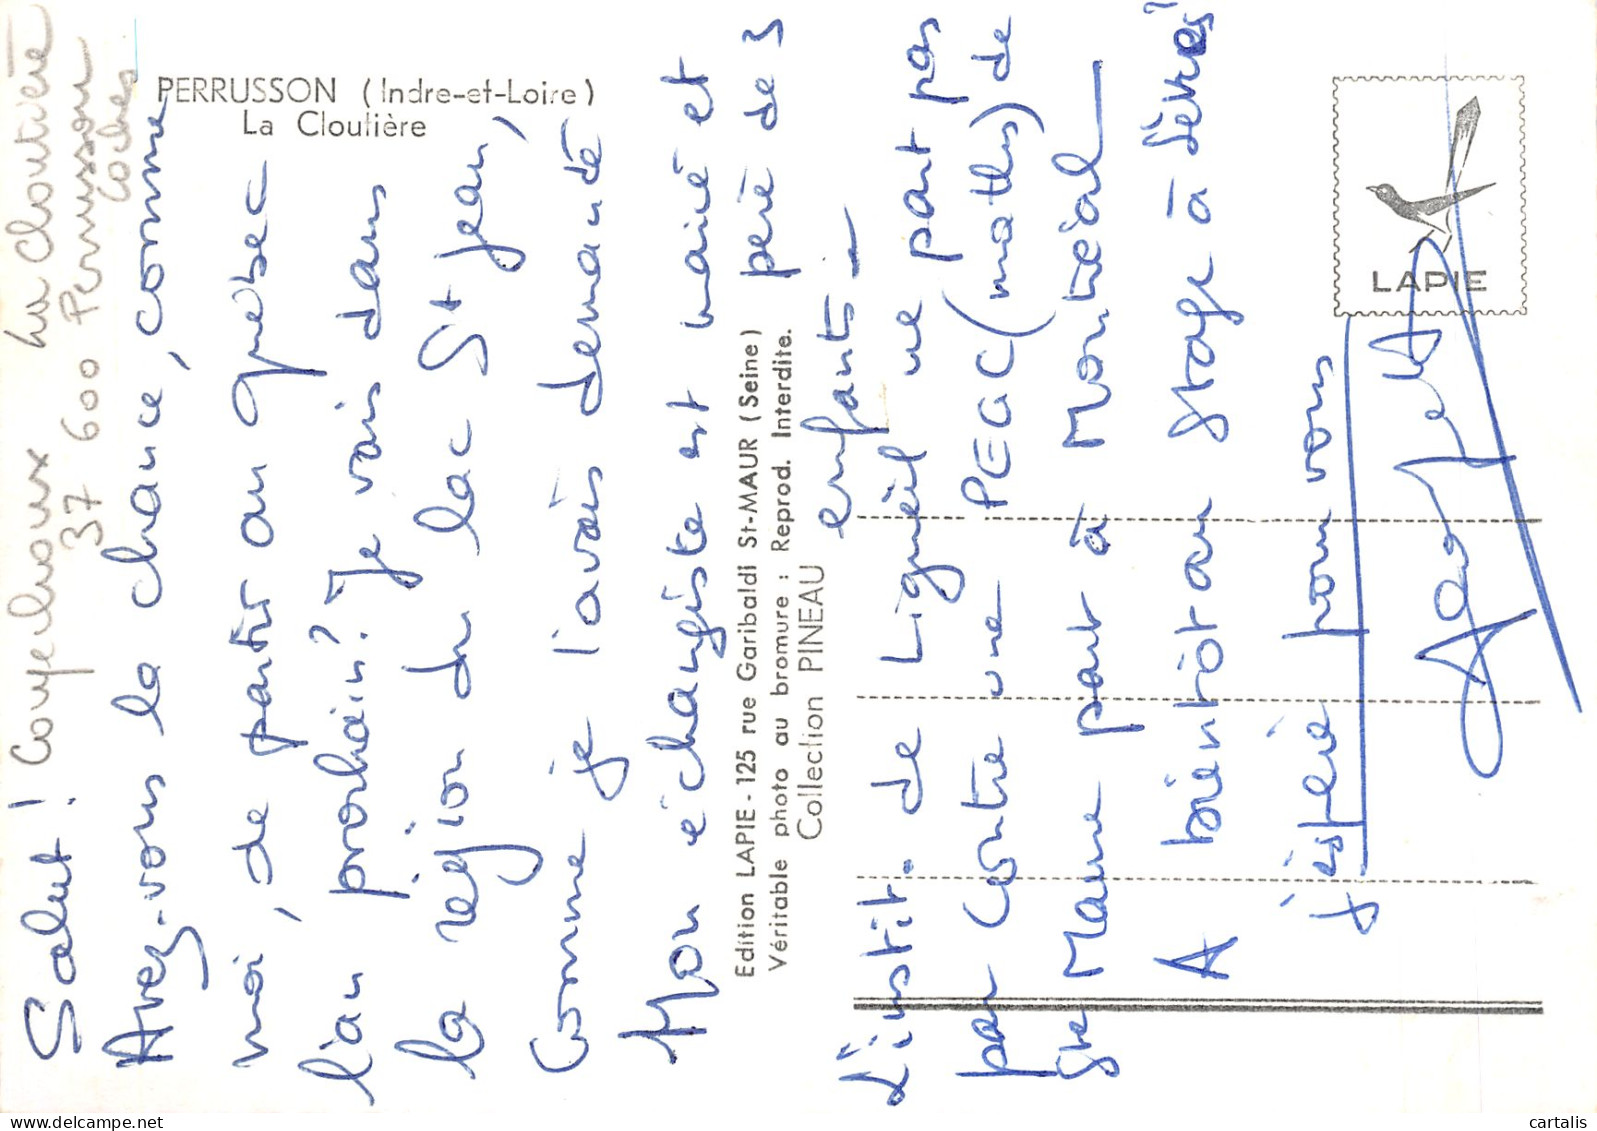 PERRUSSON (Indre-et-Loire)
La Cloutière
LAPIE
Edition LAPIE - 125 rue Garibaldi St-MAUR (Seine)
Véritable photo au bromure : Reprod. Interdite.
Collection PINEAU
La Cloutière
37 600 Perrusson
Salut !
Avez-vous la chance, comme
moi, de partir au Quebec
l'an prochain? Je vais dans
la région du lac St Jean,
comme je l'avais demandé
Mon échangiste est marié et
père de 3
enfants —
L'instit. de Ligueil ne part pas
par contre une PEGC (maths) de
Ste Maure part à Montréal
A bientôt au stage à Sèvres
j'espère pour vous
cartalis